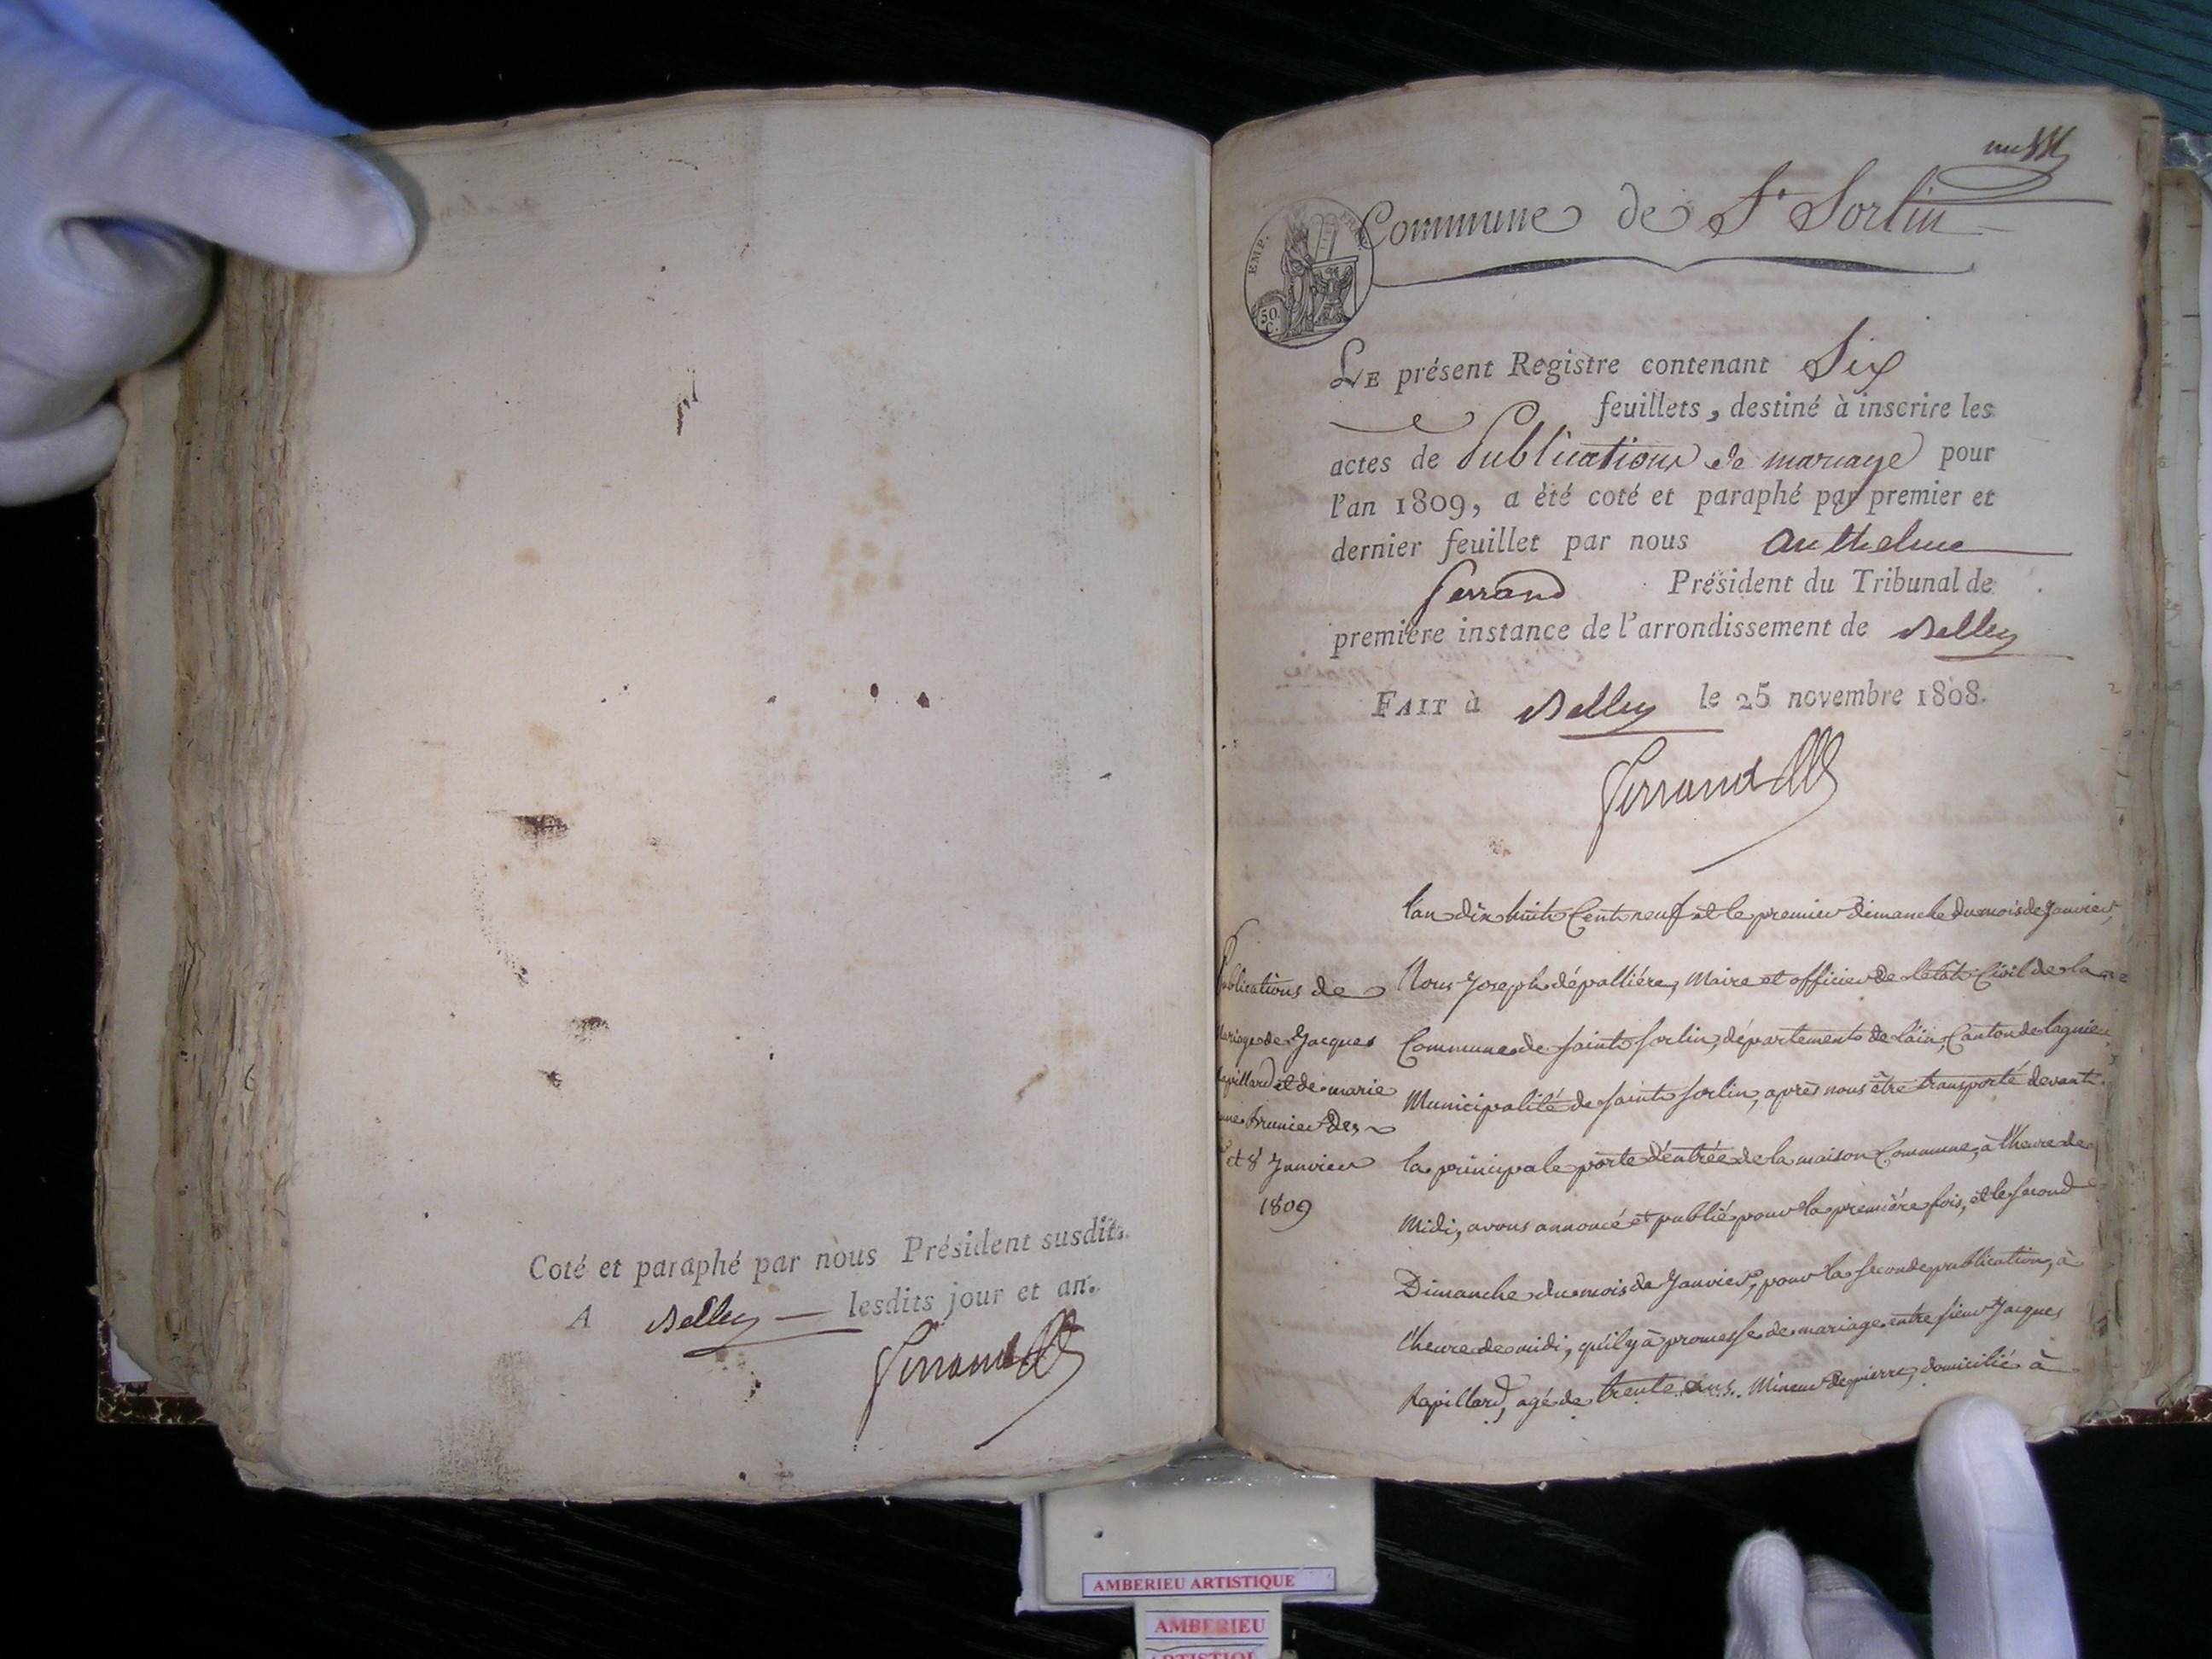 Coté et paraphé par nous Président susdit.
A Belley lesdits jour et an.
Ferrand
Commune de St Sorlin
EMP. FR
50 C.
LE présent Registre contenant Six
feuillets, destiné à inscrire les
actes de Publications de mariage pour
l'an 1809, a été coté et paraphé par premier et
dernier feuillet par nous anthelme
ferrand Président du Tribunal de
première instance de l'arrondissement de Belley
FAIT à Belley le 25 novembre 1808.
Ferrand
Publications de
mariage de Jacques
Rapillard et de marie
Brunier des
et 8 Janvier
1809
l'an dix huit Cent neuf et le premier dimanche du mois de Janvier,
Nous Joseph dépallière, Maire et officier de létat Civil de la
Commune de saint sorlin, département de lain, Canton de lagnieu
Municipalité de saint sorlin, après nous être transporté devant
la principale porte d'entrée de la maison Commune, à l'heure de
Midi, avons annoncé et publié pour la première fois, et le second
Dimanche du mois de Janvier, pour la seconde publication, à
l'heure de midi, qu'il y à promesse de mariage entre sieur Jacques
Rapillard, agé de trente ans. Mineur de pierre, domicilié à
AMBERIEU ARTISTIQUE
AMBERIEU